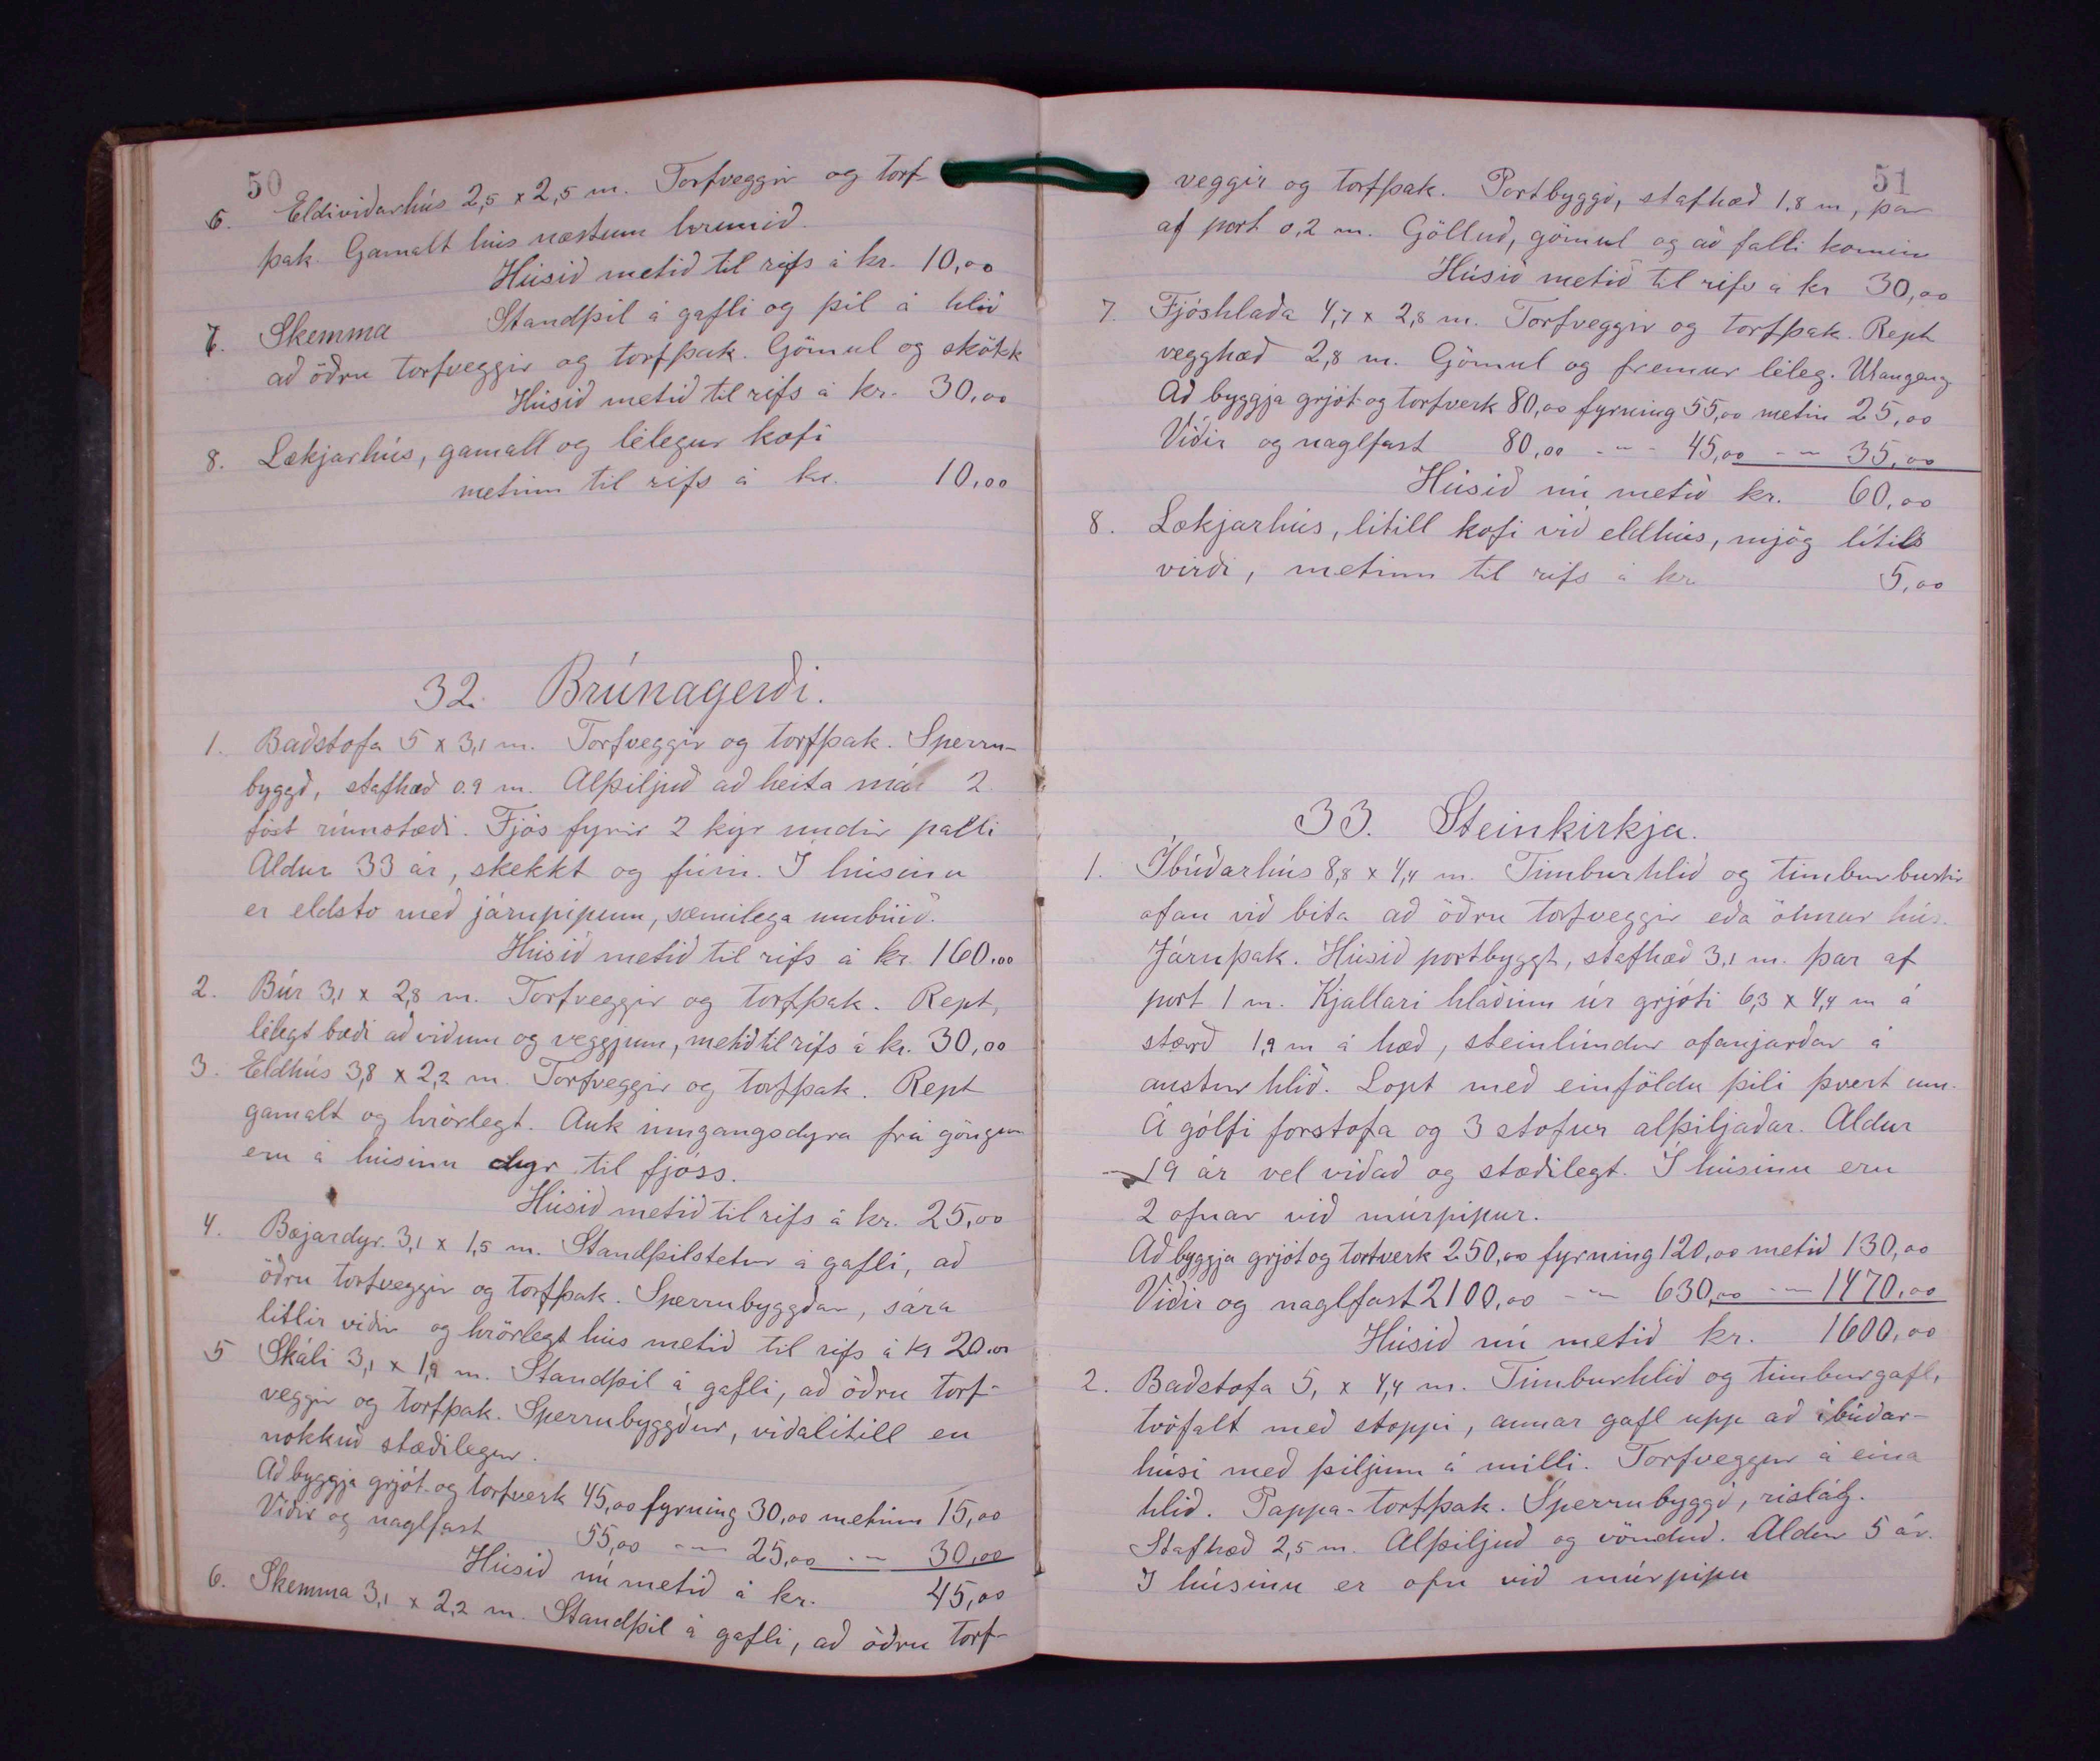 50
6. Eldiviðarhús 2,5 x 2,5 m. Torfveggir og torf-
þak. Gamalt hús næstum hrunið.
Húsið metið til rifs á kr. 10,00
7. Skemma Standþil á gafli og þil á hlið
að öðru torfveggir og torfþak. Gömul og skökk
Húsið metið til rifs á kr. 30,00
8. Lækjarhús, gamall og lélegur kofi
metinn til rifs á kr. 10,00
32. Brúnagerði.
1. Baðstofa 5 x 3,1 m. Torfveggir og torfþak. Sperru-
byggð, stafhæð 0.9 m. Alþiljuð að heita má 2
föst rúmstæði. Fjós fyrir 2 kýr undir palli
Aldur 33 ár, skekkt og fúin. Í húsinu
er eldstó með járnpípum, sæmilega umbúið.
Húsið metið til rifs á kr. 160.00
2. Búr 3,1 x 2,8 m. Torfveggir og torfþak. Rept,
lélegt bæði að viðum og veggjum, metið til rifs á kr. 30,00
3. Eldhús 3,8 x 2,2 m. Torfveggir og torfþak. Rept
gamalt og hrörlegt. Auk inngangsdyra frá göngum
eru á húsinu dyr til fjóss.
Húsið metið til rifs á kr. 25,00
4. Bæjardyr. 3,1 x 1,5 m. Standþilstetur á gafli, að
öðru torfveggir og torfþak. Sperrubyggðar, sára
litlir viðir og hrörlegt hús metið til rifs á kr 20.00
5 Skáli 3,1 x 1,9 m. Standþil á gafli, að öðru torf-
veggir og torfþak. Sperrubyggður, viðalítill en
nokkuð stæðilegur.
Að byggja grjót- og torfverk 45,00 fyrning 30,00 metinn 15,00
Viðir og naglfast 55,00 -"- 25,00 -"- 30,00
Húsið nú metið á kr. 45,00
6. Skemma 3,1 x 2,2 m. Standþil á gafli, að öðru torf-
51
veggir og torfþak. Portbyggð, stafhæð 1.8 m, þar
af port 0,2 m. Gölluð, gömul og að falli komin
Húsið metið til rifs á kr 30,00
7. Fjóshlaða 4,7 x 2,8 m. Torfveggir og torfþak. Rept
vegghæð 2,8 m. Gömul og fremur léleg. Utangeng
Að byggja grjót- og torfverk 80,00 fyrning 55,00 metin 25,00
Viðir og naglfast 80,00 -"- 45,00 -"- 35,00
Húsið nú metið kr. 60,00
8. Lækjarhús, lítill kofi við eldhús, mjög lítils
virði, metinn til rifs á kr. 5,00
33. Steinkirkja.
1. Íbúðarhús 8,8 x 4,4 m. Timburhlið og timburburstir
ofan við bita að öðru torfveggir eða önnur hús.
Járnþak. Húsið portbyggt, stafhæð 3,1 m. þar af
port 1 m. Kjallari hlaðinn úr grjóti 6,3 x 4,4 m á
stærð 1,9 m á hæð, steinlímdur ofanjarðar á
austur hlið. Lopt með einföldu þili þvert um.
Á gólfi forstofa og 3 stofur alþiljaðar. Aldur
19 ár vel viðað og stæðilegt. Í húsinu eru
2 ofnar við múrpípur.
Að byggja grjót og torfverk 250,00 fyrning 120,00 metið 130,00
Viðir og naglfast 2100,00 -"- 630,00 -"- 1470,00
Húsið nú metið kr. 1600,00
2. Baðstofa 5, x 4,4 m. Timburhlið og timburgafl,
tvöfalt með stoppi, annar gafl upp að íbúðar-
húsi með þiljum á milli. Torfveggur á eina
hlið. Pappa-torfþak. Sperrubyggð, rislág.
Stafhæð 2,5 m. Alþiljuð og vönduð. Aldur 5 ár.
Í húsinu er ofn við múrpípu